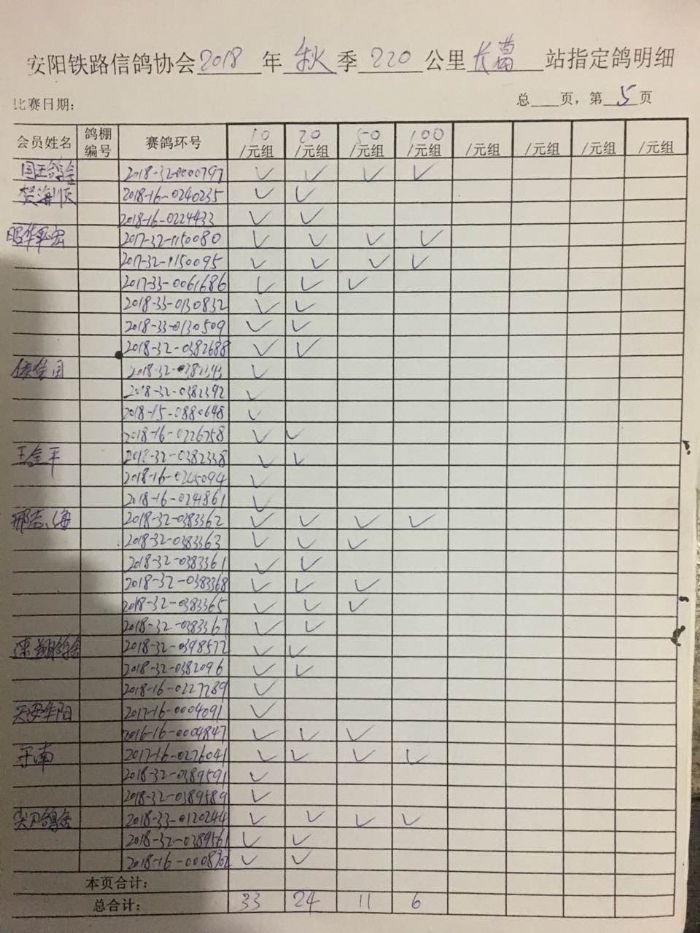 安阳铁路信鸽协会2018年秋季220公里长葛站指定鸽明细
比赛日期: 总 页，第5页
会员姓名 鸽棚编号 赛鸽环号 10/元组 20/元组 50/元组 100/元组 /元组 /元组 /元组 /元组
2018-32-0000797 ✓ ✓ ✓ ✓
2018-16-0240235 ✓ ✓
2018-16-0224433 ✓ ✓
2017-32-1150080 ✓ ✓ ✓ ✓
2017-32-1150095 ✓ ✓ ✓ ✓
2017-33-0061686 ✓ ✓ ✓
2018-33-0130832 ✓ ✓
2018-33-0130509 ✓ ✓
2018-32-0382688 ✓ ✓
✓
2018-32-0382392 ✓
2018-15-0880648 ✓
2018-16-0226758 ✓ ✓
王金平 2018-32-0382338 ✓ ✓
2018-16-0245094 ✓
2018-16-0241861 ✓
2018-32-0383362 ✓ ✓ ✓ ✓
2018-32-0383363 ✓ ✓ ✓
2018-32-0383361 ✓ ✓
2018-32-0383368 ✓ ✓ ✓
2018-32-0383365 ✓ ✓ ✓
2018-32-0383367 ✓ ✓
2018-32-0398572 ✓ ✓
2018-32-0382096 ✓ ✓
2018-16-0227789 ✓
2017-16-0004091 ✓
2016-16-0009847 ✓ ✓ ✓
于南 2017-16-0276041 ✓ ✓ ✓ ✓
2018-32-0389591 ✓
2018-32-0389589 ✓
2018-33-0120244 ✓ ✓ ✓ ✓
2018-32-0389561 ✓ ✓
✓ ✓
本页合计:
总合计: 33 24 11 6